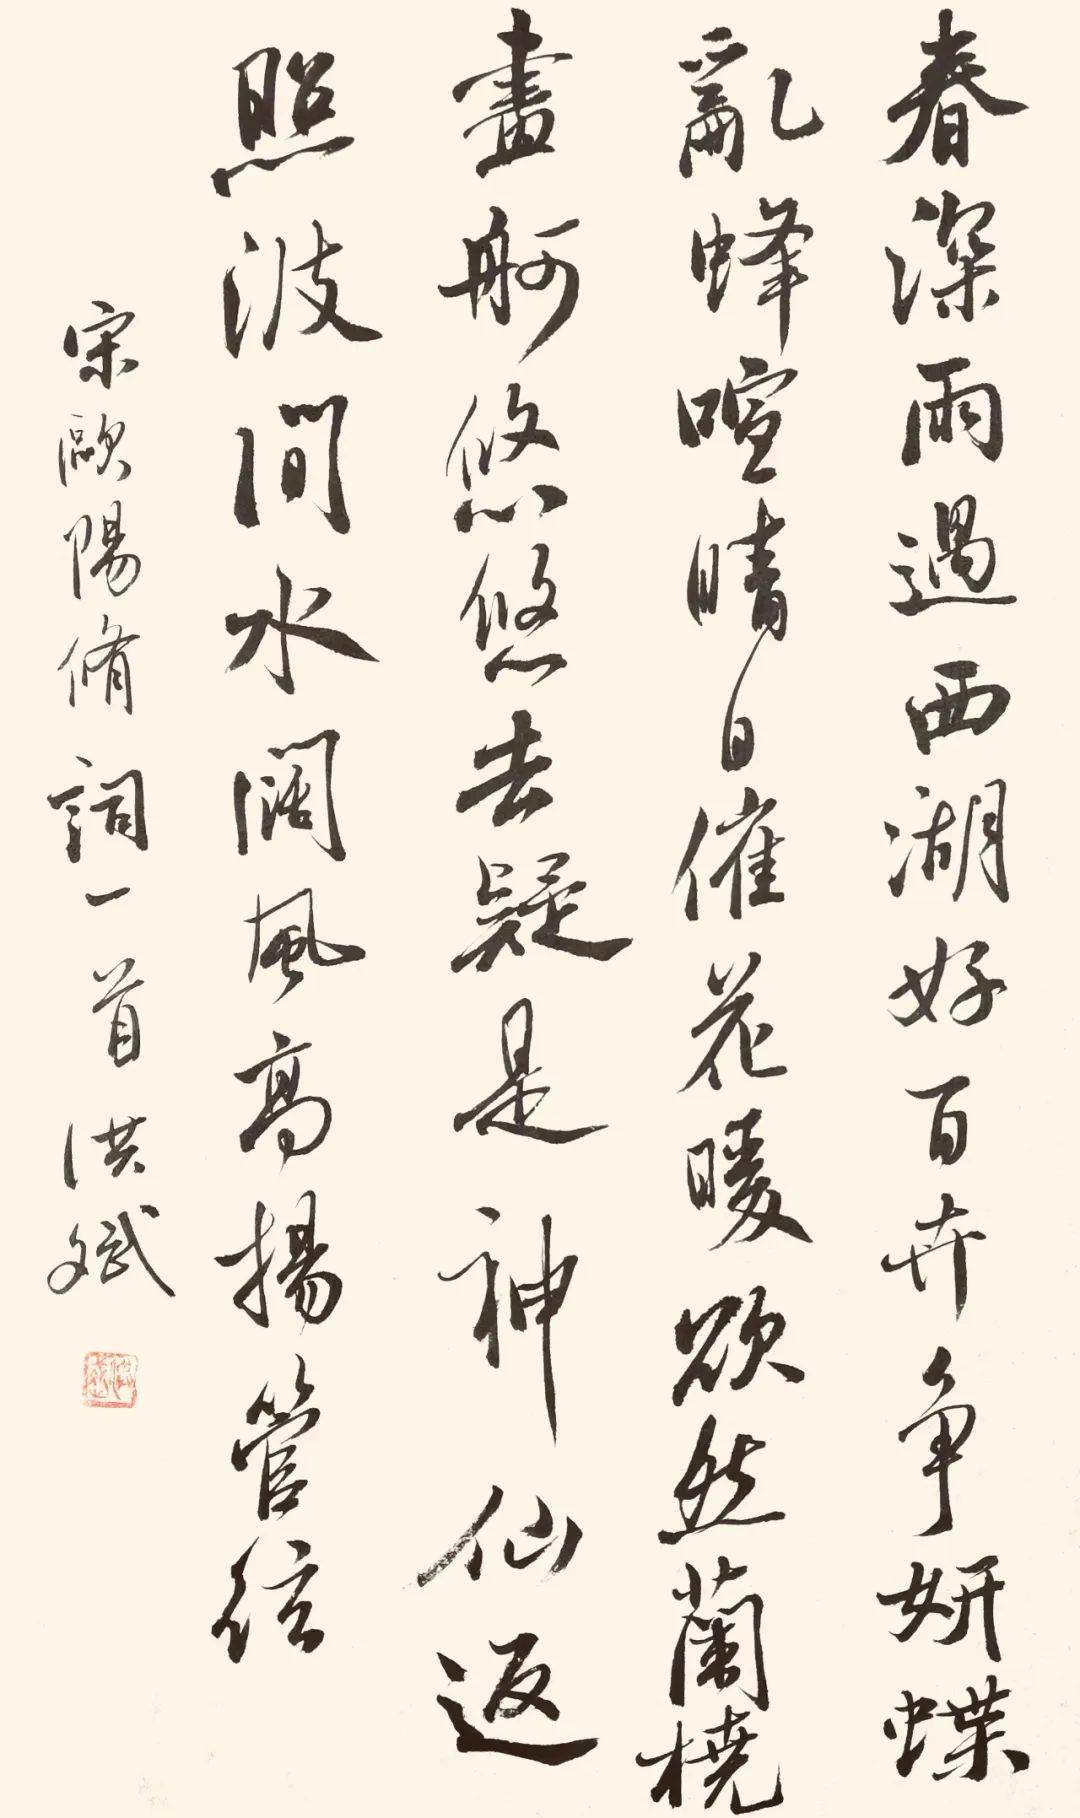 春深雨過西湖好百卉争妍蝶
亂蜂喧晴日催花暖欲然蘭橈
畫舸悠悠去疑是神仙返
照波間水闊風高揚管弦
宋歐陽脩詞一首洪斌